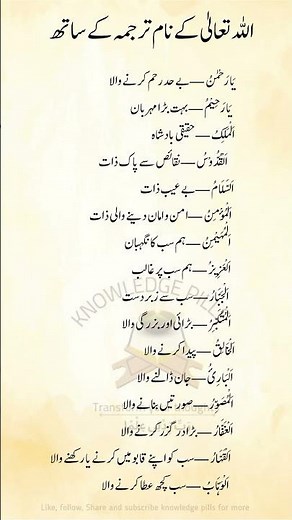 اللہ تعالیٰ کے نام ترجمہ کے ساتھ
یَارَحْمٰنُ — بے حد رحم کرنے والا
یَارَحِیْمُ — بہت بڑا مہربان
اَلْمَلِکُ — حقیقی بادشاہ
اَلْقُدُّوْسُ — نقائص سے پاک ذات
اَلسَّلَامُ — بے عیب ذات
اَلْمُؤْمِنُ — امن و امان دینے والی ذات
اَلْمُهَیْمِنُ — ہم سب کا نگہبان
اَلْعَزِیْزُ — ہم سب پر غالب
اَلْجَبَّارُ — سب سے زبردست
اَلْمُتَکَبِّرُ — بڑائی اور بزرگی والا
اَلْخَالِقُ — پیدا کرنے والا
اَلْبَارِئُ — جان ڈالنے والا
اَلْمُصَوِّرُ — صورتیں بنانے والا
اَلْغَفَّارُ — بڑا درگزر کرنے والا
اَلْقَهَّارُ — سب کو اپنے قابو میں کرنے یا رکھنے والا
اَلْوَهَّابُ — سب کچھ عطا کرنے والا
KNOWLEDGE PILLS
Like, follow, Share and subscribe knowledge pills for more